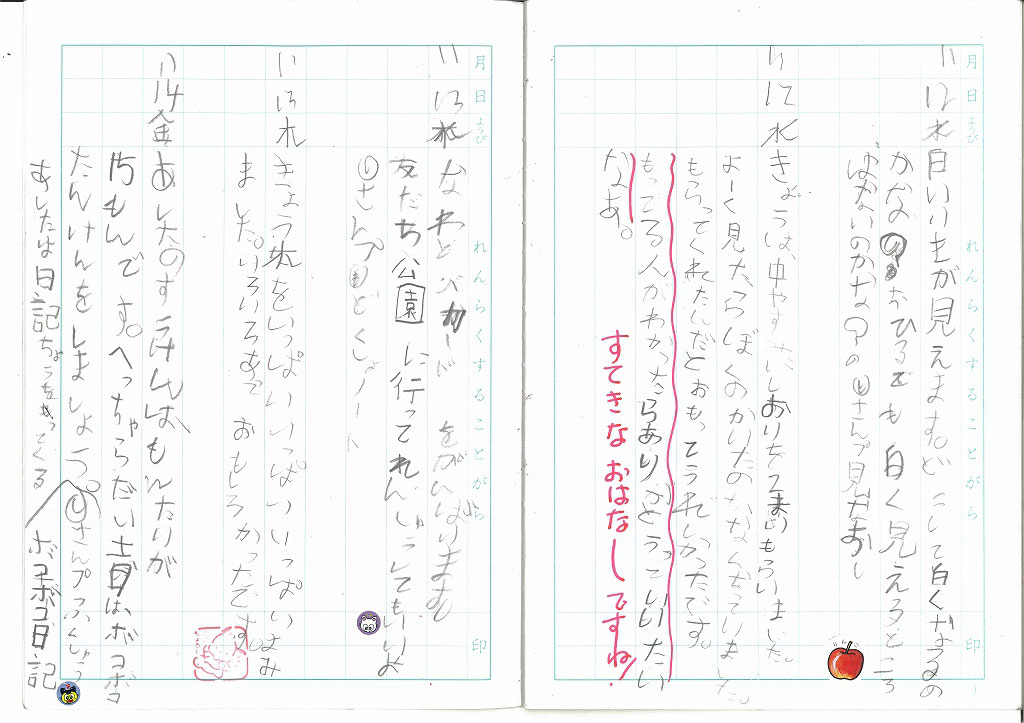 月日ようび
れんらくすることがら
印
11 12 水 白いいもが見えます。どこして白くなるの
かな おひるでも白く見えるところ
ばないのかな の さんプ見なおし
11 12 水 きょうは、中やすみにしおりをてもらいました。
よーく見たらぼくのかいたのがなくなっていました。
もらってくれたんだとおもってうれしかったです。
もってる人がわかったらありがとうっていいたい
なあ。
すてきなおはなしですね!
月日ようび
れんらくすることがら
印
11 13 木 なわとびカードをがんばります
友だち公園に行ってれんしゅうしてもいいよ
さんプ どくしょノート
11 13 木 きょう本をいっぱいいっぱいいっぱいよみ
ました。いろいろあっておもしろかったです。
11 14 金 あしたのすうけんは、もんだいが
15もんです。へっちゃらだい 土日は、ボコボコ
たんけんをしましょう。 さんプふくしゅう
あしたは日記ちょうをもってくる ボコボコ日記